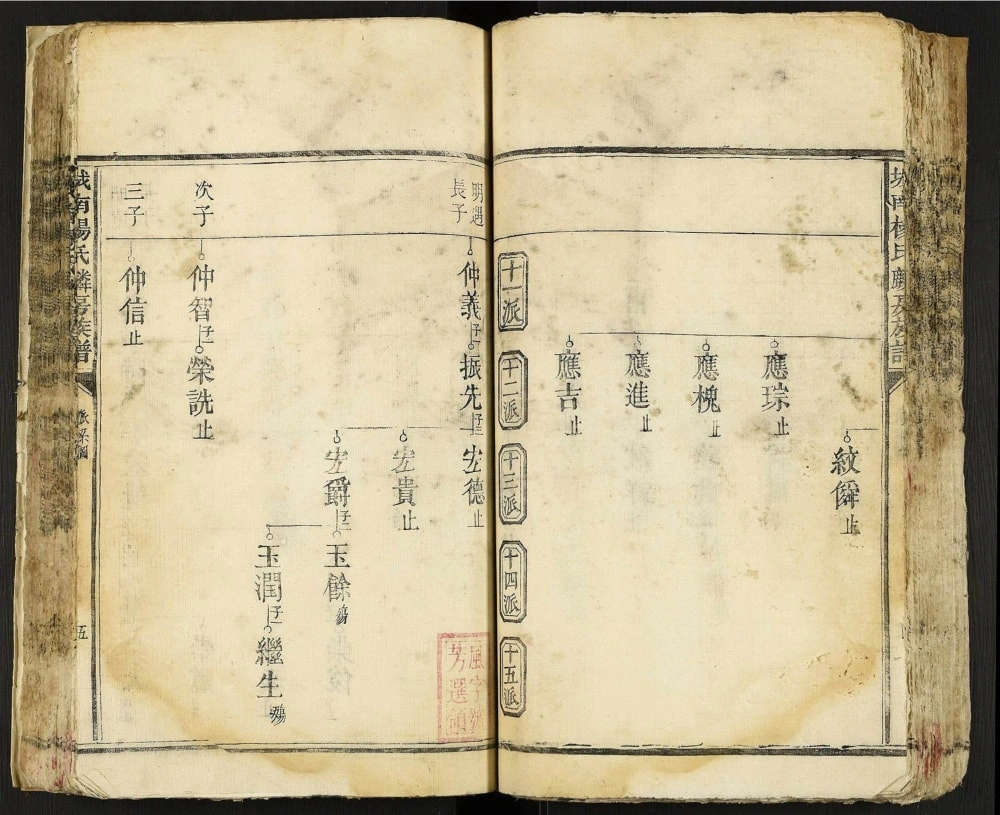 城南楊氏
紋僢止
應琮止
應槐止
應進止
應吉止
十一派
十二派
十三派
十四派
十五派
明遇
長子
仲義
振先
宏德止
宏貴止
宏爵
玉餘殤
玉潤
繼生殤
次子
仲智
榮詵止
三子
仲信止
城南楊氏麟房族譜
派系圖
五